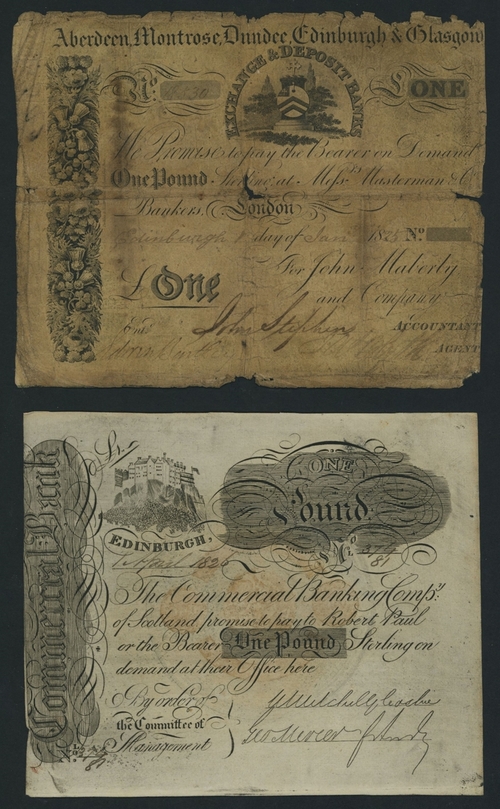 Aberdeen, Montrose, Dundee, Edinburgh & Glasgow
EXCHANGE & DEPOSIT BANKS
No.
£ONE
We Promise to pay the Bearer on Demand
One Pound Sterling at Messrs Masterman & Co
Bankers, London
Edinburgh 1 day of Jany 182 No
For John Maberly
£ One
and Company
John Stephens
ACCOUNTANT
Entd
AGENT
Commercial Bank
ONE
Pound
EDINBURGH,
No
April 1826
87
The Commercial Banking Compy
of Scotland promise to pay to Robert Paul
or the Bearer One Pound Sterling on
demand at their Office here
By order of
the Committee of
Management
Geo Mercer
87